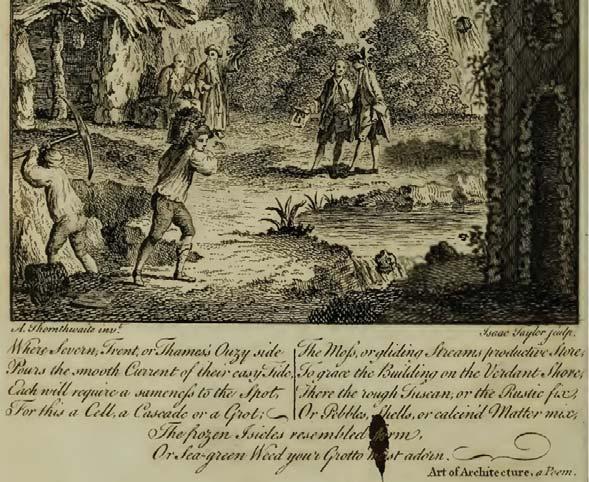 A. Thornthwaite inv.t
Isaac Taylor sculp.
Where Severn, Trent, or Thames's Ouzy side
Pours the smooth Current of their easy Tide,
Each will require a sameness to the Spot,
For this a Cell, a Cascade or a Grot;
The Moss, or gliding Streams productive Store,
To grace the Building on the Verdant Shore,
There the rough Tuscan, or the Rustic fix,
Or Pebbles, Shells, or calcin'd Matter mix,
The frozen Isicles resembled form,
Or Sea-green Weed your Grotto must adorn.
Art of Architecture, a Poem.